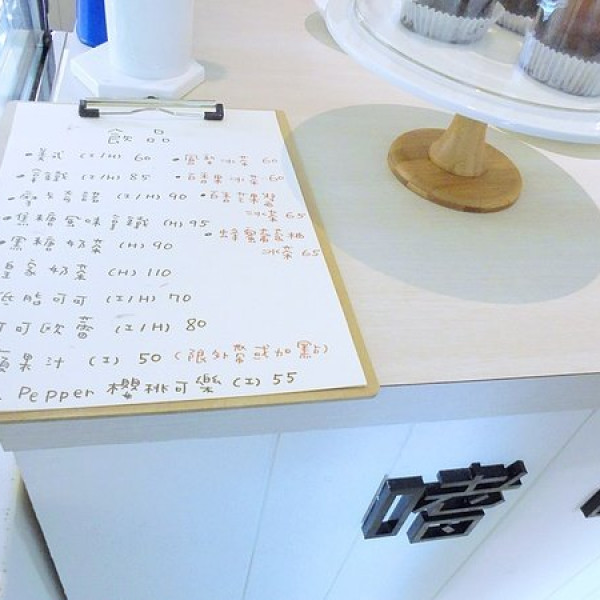 飲品
美式 (I/H) 60
拿鐵 (I/H) 85
(I/H) 90
焦糖風味拿鐵 (H) 95
黑糖奶茶 (H) 90
皇家奶茶 (H) 110
低脂可可 (I/H) 70
可可歐蕾 (I/H) 80
蘋果汁 (I) 50 (限外帶或加點)
Pepper 櫻桃可樂 (I) 55
冰茶 60
百香果冰茶 60
百香
冰茶 65
蜂蜜葡萄柚
冰茶 65
嗜